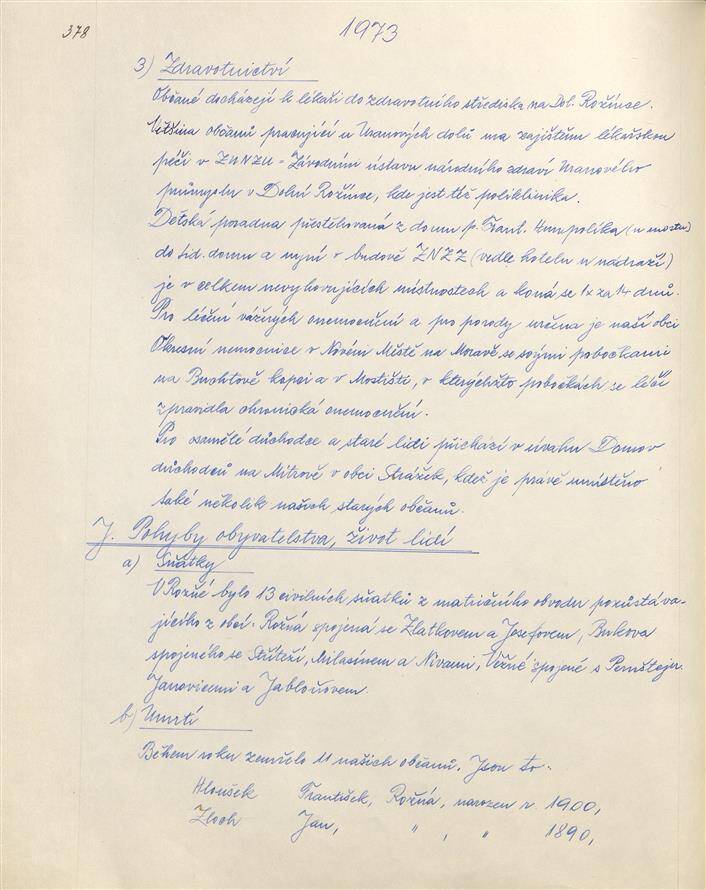 378
1973
3) Zdravotnictví
Občané docházejí k lékaři do zdravotního střediska na Dol. Rožínce.
Většina občanů pracující u Uranových dolů má zajištěnu lékařskou
péči v ZÚNZU - Závodním ústavu národního zdraví Uranového
průmyslu v Dolní Rožínce, kde jest též poliklinika.
Dětská poradna přestěhovaná z domu p. Frant. Humpolíka (u mostu)
do lid. domu a nyní v budově ZNZZ (vedle hotelu u nádraží)
je v celkem nevyhovujících místnostech a koná se 1x za 14 dnů.
Pro léčení vážných onemocnění a pro porody určena je naší obci
Okresní nemocnice v Novém Městě na Moravě se svými pobočkami
na Buchtově kopci a v Mostišti, v kterýchžto pobočkách se léčí
zpravidla chronická onemocnění.
Pro osamělé důchodce a staré lidi přichází v úvahu Domov
důchodců na Mitrově v obci Strážek, kdež je právě umístěno
také několik našich starých občanů.
J. Pohyby obyvatelstva, život lidí
a) Sňatky
V Rožné bylo 13 civilních sňatků z matričního obvodu pozůstáva-
jícího z obcí: Rožná spojená se Zlatkovem a Josefovem, Bukova
spojeného se Stříteží, Milasínem a Nivami, Věžné spojené s Pernštejn.
Janovicemi a Jabloňovem.
b) Úmrtí
Během roku zemřelo 11 našich občanů. Jsou to:
Hloušek František, Rožná, narozen r. 1900,
Zloch Jan, " , " 1890,